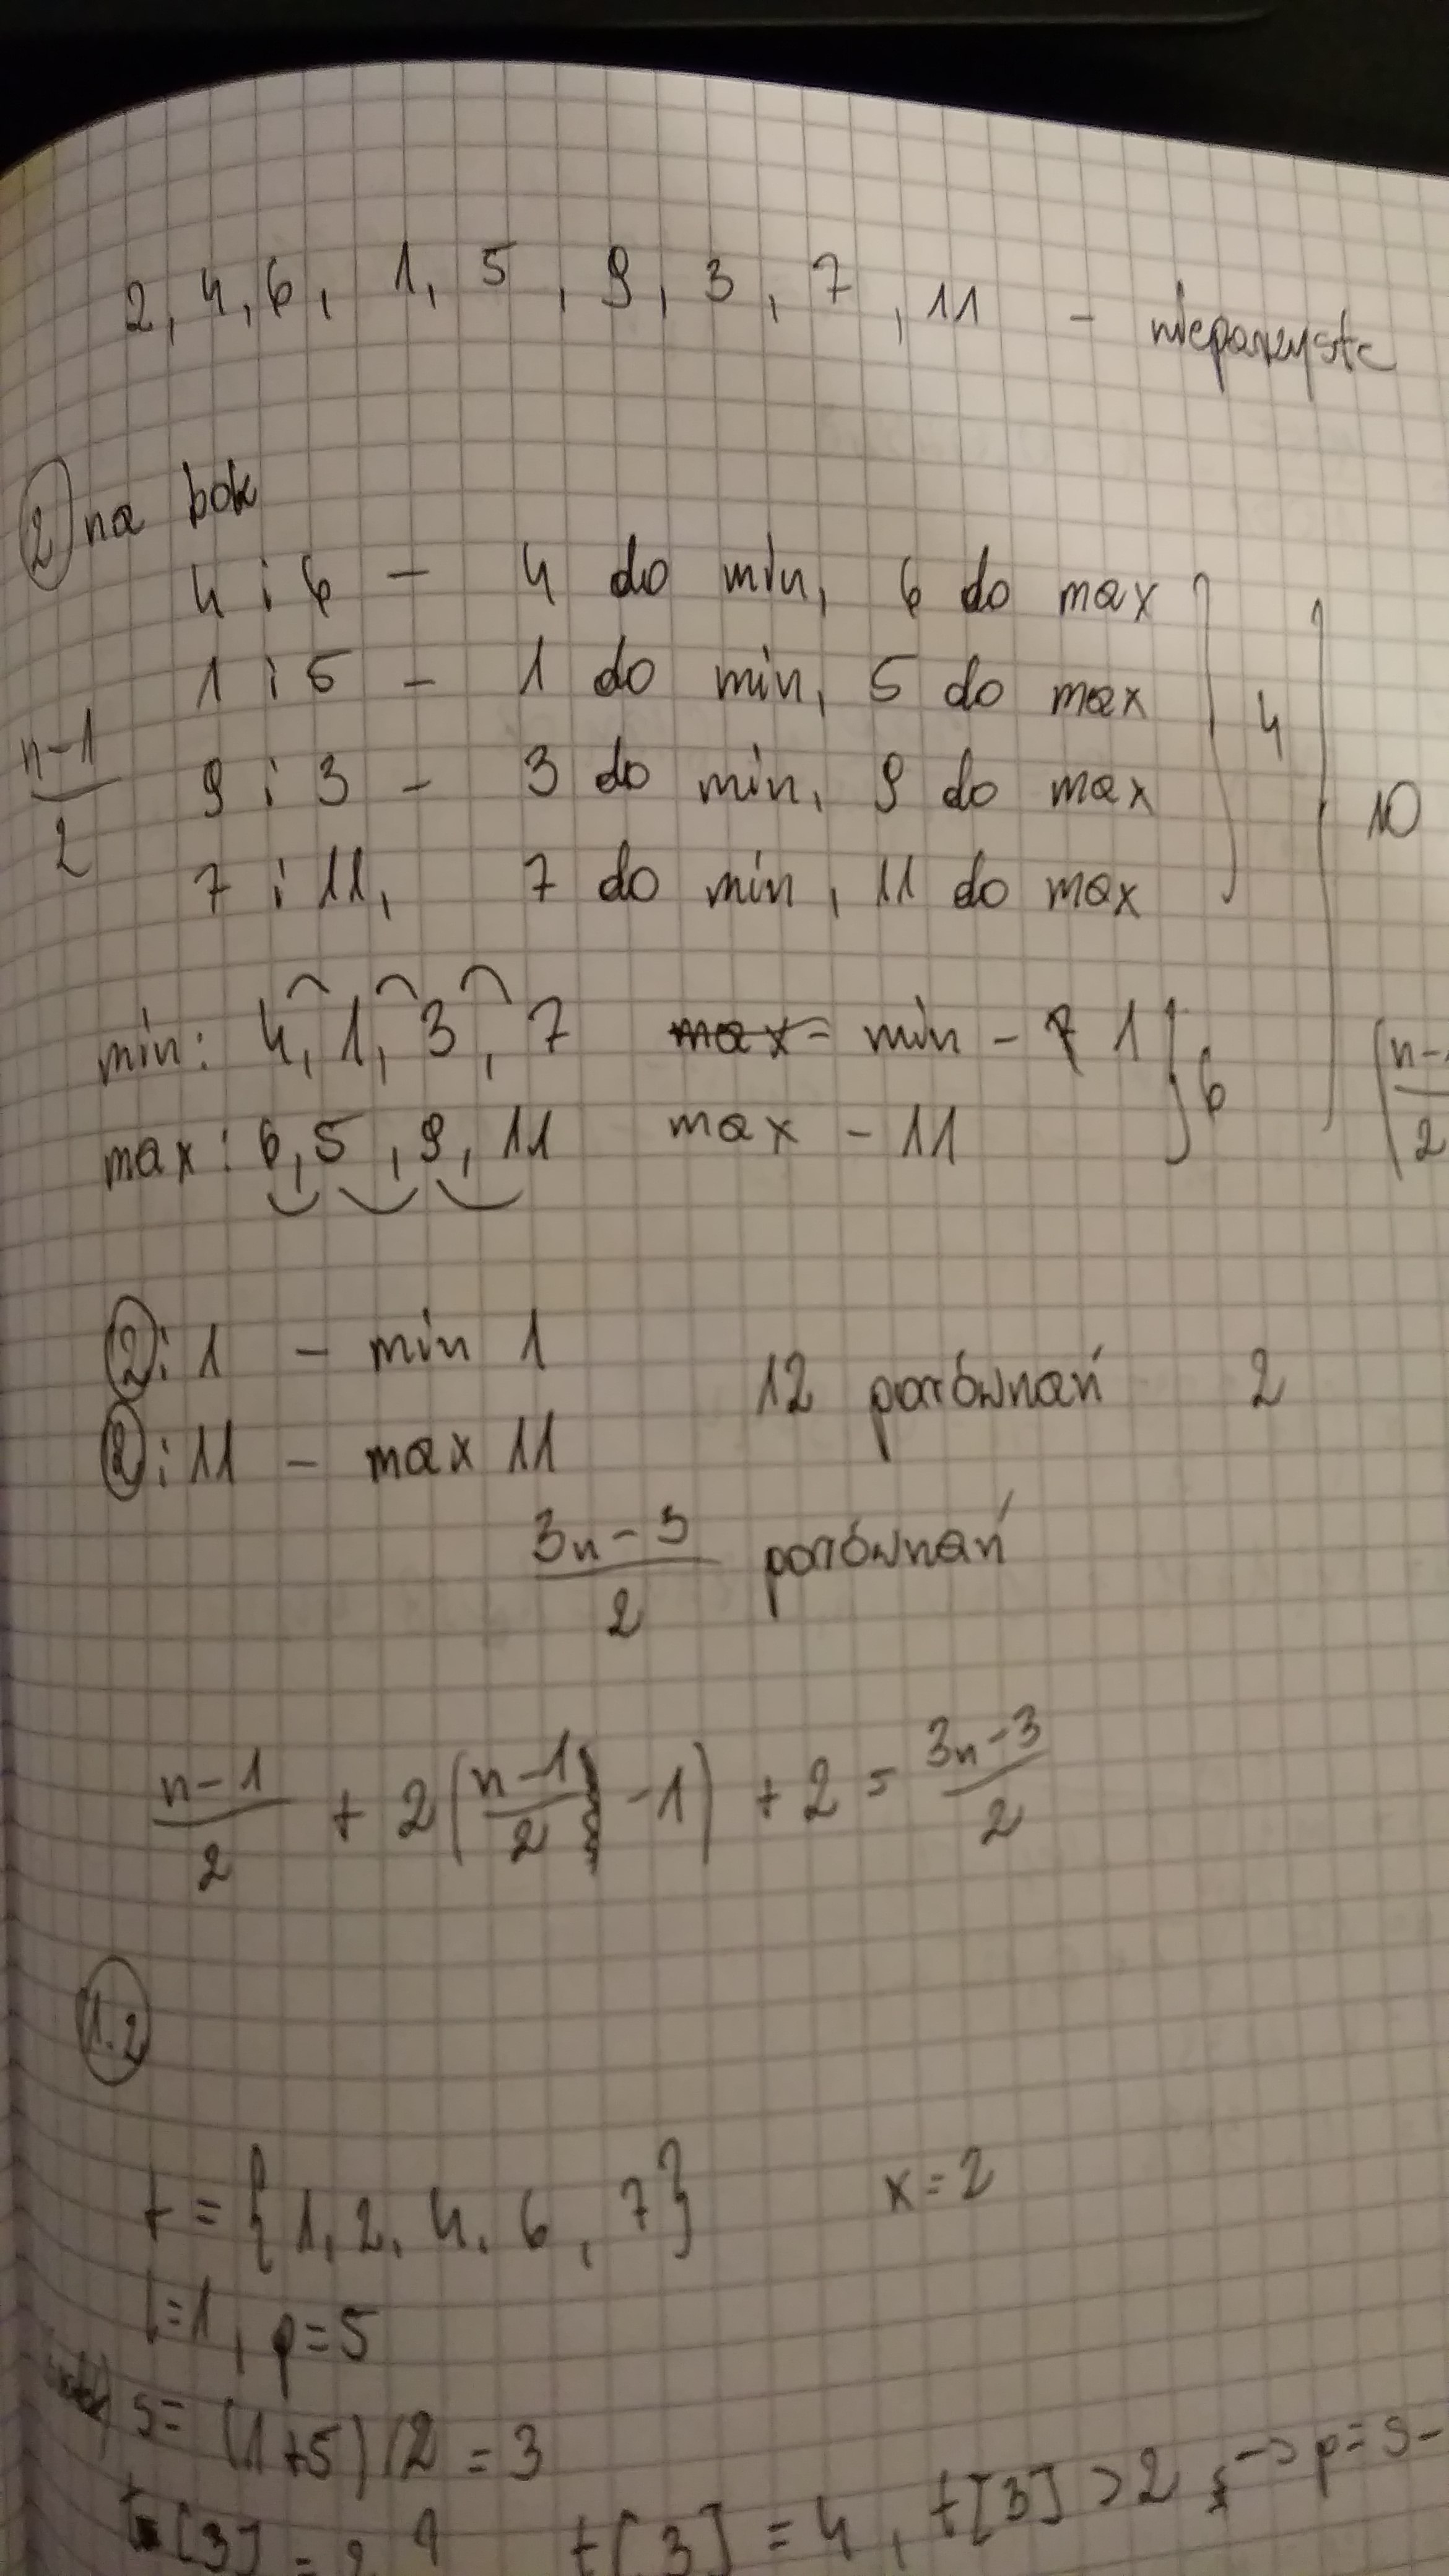 2, 4, 6, 1, 5, 9, 3, 7, 11 - nieparzyste
2 na bok
4 i 6 - 4 do min, 6 do max
1 i 5 - 1 do min, 5 do max } 4
n-1/2 9 i 3 - 3 do min, 9 do max } 10
7 i 11, 7 do min, 11 do max
min: 4, 1, 3, 7 max = min - 1 } 6 (n-
max: 6, 5, 9, 11 max - 11 2
2 i 1 - min 1
12 porównań 2
2 i 11 - max 11
3n-3/2 porównań
n-1/2 + 2(n-1/2 -1) + 2 = 3n-3/2
1.2
t = {1, 2, 4, 6, 7} x = 2
l=1, p=5
s = (1+5)/2 = 3
t[3] = 2? t[3] = 4, t[3] > 2 -> p = s-